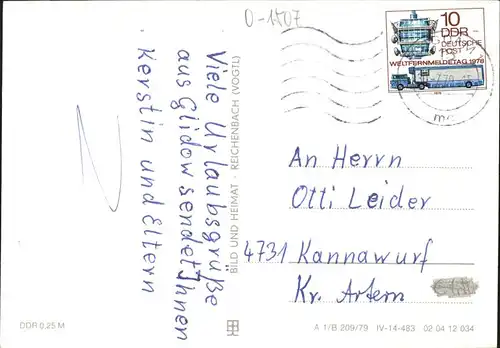 0-1507
10
DDR
DEUTSCHE
POST
WELTFERNMELDETAG 1978
Viele Urlaubsgrüße
aus Glidow sendet Ihnen
Kerstin und Eltern
BILD UND HEIMAT · REICHENBACH (VOGTL)
An Herrn
Otti Leider
4731 Kannawurf
Kr. Artern
DDR 0,25 M
A 1/B 209/79 IV-14-483 02 04 12 034